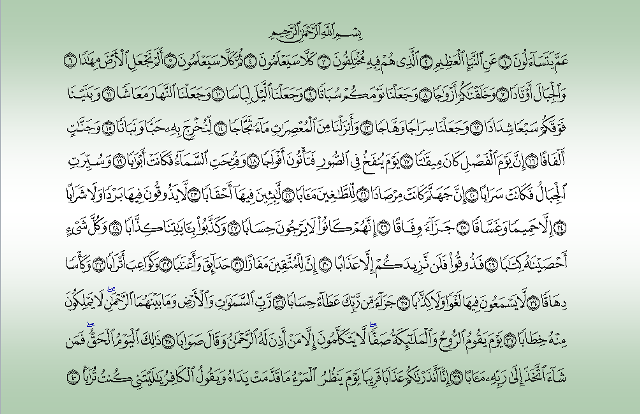 بِسْمِ ٱللَّهِ ٱلرَّحْمَٰنِ ٱلرَّحِيمِ
عَمَّ يَتَسَآءَلُونَ ١ عَنِ ٱلنَّبَإِ ٱلْعَظِيمِ ٢ ٱلَّذِى هُمْ فِيهِ مُخْتَلِفُونَ ٣ كَلَّا سَيَعْلَمُونَ ٤ ثُمَّ كَلَّا سَيَعْلَمُونَ ٥ أَلَمْ نَجْعَلِ ٱلْأَرْضَ مِهَٰدًا ٦
وَٱلْجِبَالَ أَوْتَادًا ٧ وَخَلَقْنَٰكُمْ أَزْوَٰجًا ٨ وَجَعَلْنَا نَوْمَكُمْ سُبَاتًا ٩ وَجَعَلْنَا ٱلَّيْلَ لِبَاسًا ١٠ وَجَعَلْنَا ٱلنَّهَارَ مَعَاشًا ١١ وَبَنَيْنَا
فَوْقَكُمْ سَبْعًا شِدَادًا ١٢ وَجَعَلْنَا سِرَاجًا وَهَّاجًا ١٣ وَأَنزَلْنَا مِنَ ٱلْمُعْصِرَٰتِ مَآءً ثَجَّاجًا ١٤ لِّنُخْرِجَ بِهِۦ حَبًّا وَنَبَاتًا ١٥ وَجَنَّٰتٍ
أَلْفَافًا ١٦ إِنَّ يَوْمَ ٱلْفَصْلِ كَانَ مِيقَٰتًا ١٧ يَوْمَ يُنفَخُ فِى ٱلصُّورِ فَتَأْتُونَ أَفْوَاجًا ١٨ وَفُتِحَتِ ٱلسَّمَآءُ فَكَانَتْ أَبْوَٰبًا ١٩ وَسُيِّرَتِ
ٱلْجِبَالُ فَكَانَتْ سَرَابًا ٢٠ إِنَّ جَهَنَّمَ كَانَتْ مِرْصَادًا ٢١ لِّلطَّٰغِينَ مَـَٔابًا ٢٢ لَّٰبِثِينَ فِيهَآ أَحْقَابًا ٢٣ لَّا يَذُوقُونَ فِيهَا بَرْدًا وَلَا شَرَابًا
٢٤ إِلَّا حَمِيمًا وَغَسَّاقًا ٢٥ جَزَآءً وِفَاقًا ٢٦ إِنَّهُمْ كَانُوا۟ لَا يَرْجُونَ حِسَابًا ٢٧ وَكَذَّبُوا۟ بِـَٔايَٰتِنَا كِذَّابًا ٢٨ وَكُلَّ شَىْءٍ
أَحْصَيْنَٰهُ كِتَٰبًا ٢٩ فَذُوقُوا۟ فَلَن نَّزِيدَكُمْ إِلَّا عَذَابًا ٣٠ إِنَّ لِلْمُتَّقِينَ مَفَازًا ٣١ حَدَآئِقَ وَأَعْنَٰبًا ٣٢ وَكَوَاعِبَ أَتْرَابًا ٣٣ وَكَأْسًا
دِهَاقًا ٣٤ لَّا يَسْمَعُونَ فِيهَا لَغْوًا وَلَا كِذَّٰبًا ٣٥ جَزَآءً مِّن رَّبِّكَ عَطَآءً حِسَابًا ٣٦ رَّبِّ ٱلسَّمَٰوَٰتِ وَٱلْأَرْضِ وَمَا بَيْنَهُمَا ٱلرَّحْمَٰنِ ۖ لَا يَمْلِكُونَ
مِنْهُ خِطَابًا ٣٧ يَوْمَ يَقُومُ ٱلرُّوحُ وَٱلْمَلَٰٓئِكَةُ صَفًّا ۖ لَّا يَتَكَلَّمُونَ إِلَّا مَنْ أَذِنَ لَهُ ٱلرَّحْمَٰنُ وَقَالَ صَوَابًا ٣٨ ذَٰلِكَ ٱلْيَوْمُ ٱلْحَقُّ ۖ فَمَن
شَآءَ ٱتَّخَذَ إِلَىٰ رَبِّهِۦ مَـَٔابًا ٣٩ إِنَّآ أَنذَرْنَٰكُمْ عَذَابًا قَرِيبًا يَوْمَ يَنظُرُ ٱلْمَرْءُ مَا قَدَّمَتْ يَدَاهُ وَيَقُولُ ٱلْكَافِرُ يَٰلَيْتَنِى كُنتُ تُرَٰبًۢا ٤٠